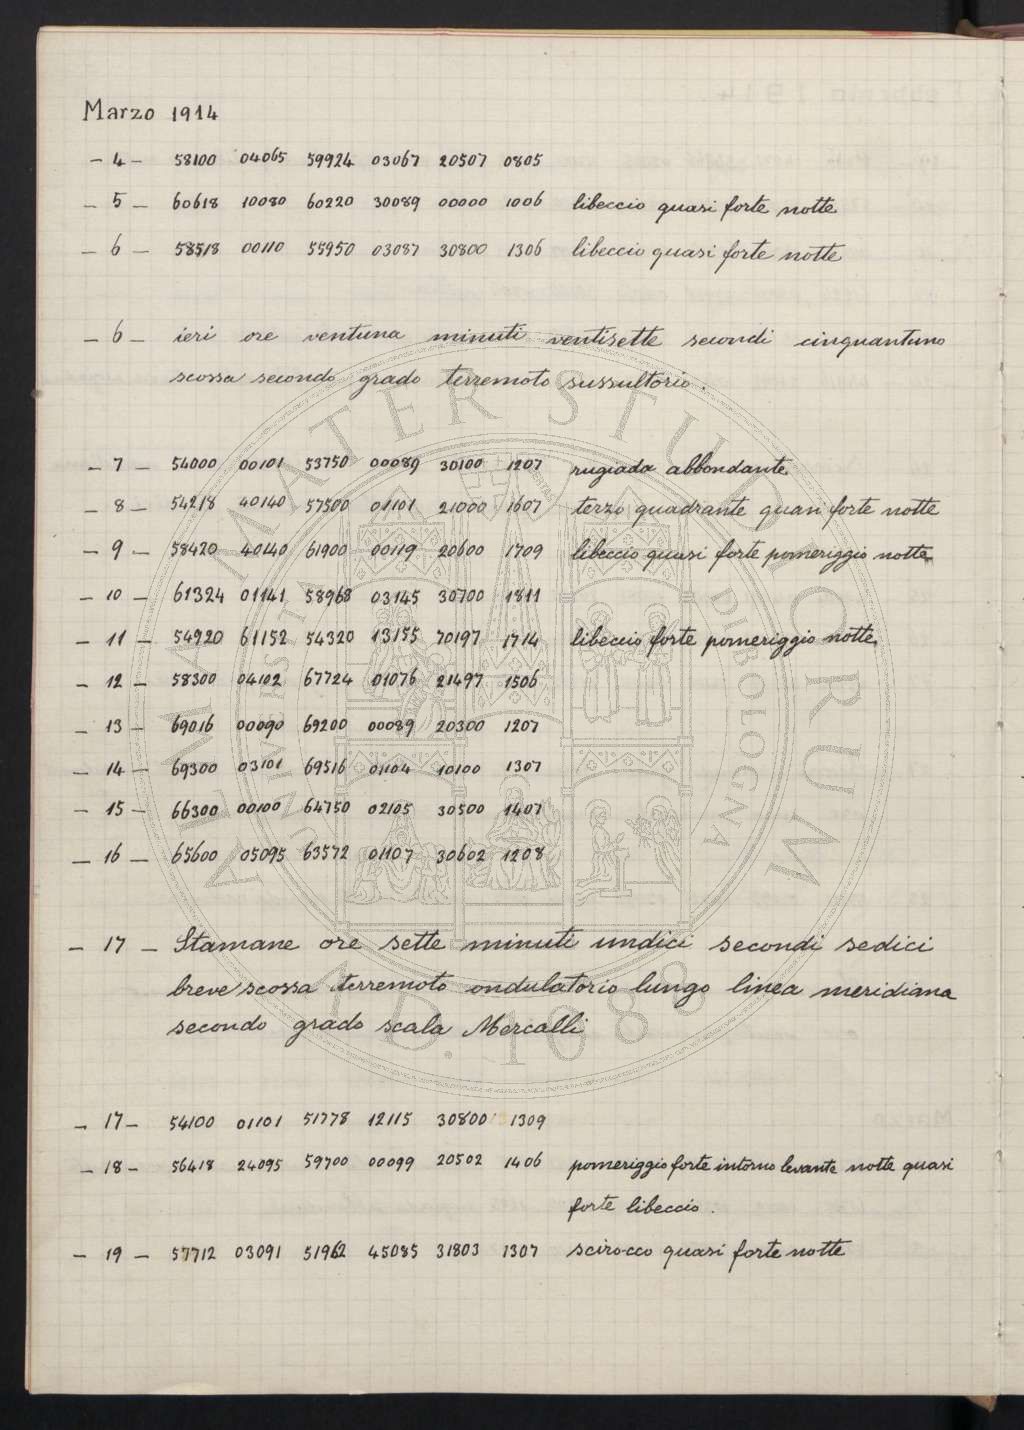 Marzo 1914
- 4 - 58100 04065 59924 03067 20507 0805
- 5 - 60618 10080 60220 30089 00000 1006 libeccio quasi forte notte
- 6 - 58518 00110 55950 03087 30800 1306 libeccio quasi forte notte
- 6 - ieri ore ventuna minuti ventisette secondi cinquantuno
scossa secondo grado terremoto sussultorio.
- 7 - 54000 00101 53750 00089 30100 1207 rugiada abbondante
- 8 - 54218 40140 57500 01101 21000 1607 terzo quadrante quasi forte notte
- 9 - 58420 40140 61900 00119 20600 1709 libeccio quasi forte pomeriggio notte
- 10 - 61324 01141 58968 03145 30700 1811
- 11 - 54920 61152 54320 13155 70197 1714 libeccio forte pomeriggio notte
- 12 - 58300 04102 67724 01076 21497 1506
- 13 - 69016 00090 69200 00089 20300 1207
- 14 - 69300 03101 69516 01104 10100 1307
- 15 - 66300 00100 64750 02105 30500 1407
- 16 - 65600 05095 63572 01107 30602 1208
- 17 - Stamane ore sette minuti undici secondi sedici
breve scossa terremoto ondulatorio lungo linea meridiana
secondo grado scala Mercalli
- 17 - 54100 01101 51778 12115 30800 1309
- 18 - 56418 24095 59700 00099 20502 1406 pomeriggio forte intorno levante notte quasi
forte libeccio.
- 19 - 57712 03091 51962 45085 31803 1307 scirocco quasi forte notte
ALMA MATER STUDIORUM
A.D. 1088
DI BOLOGNA